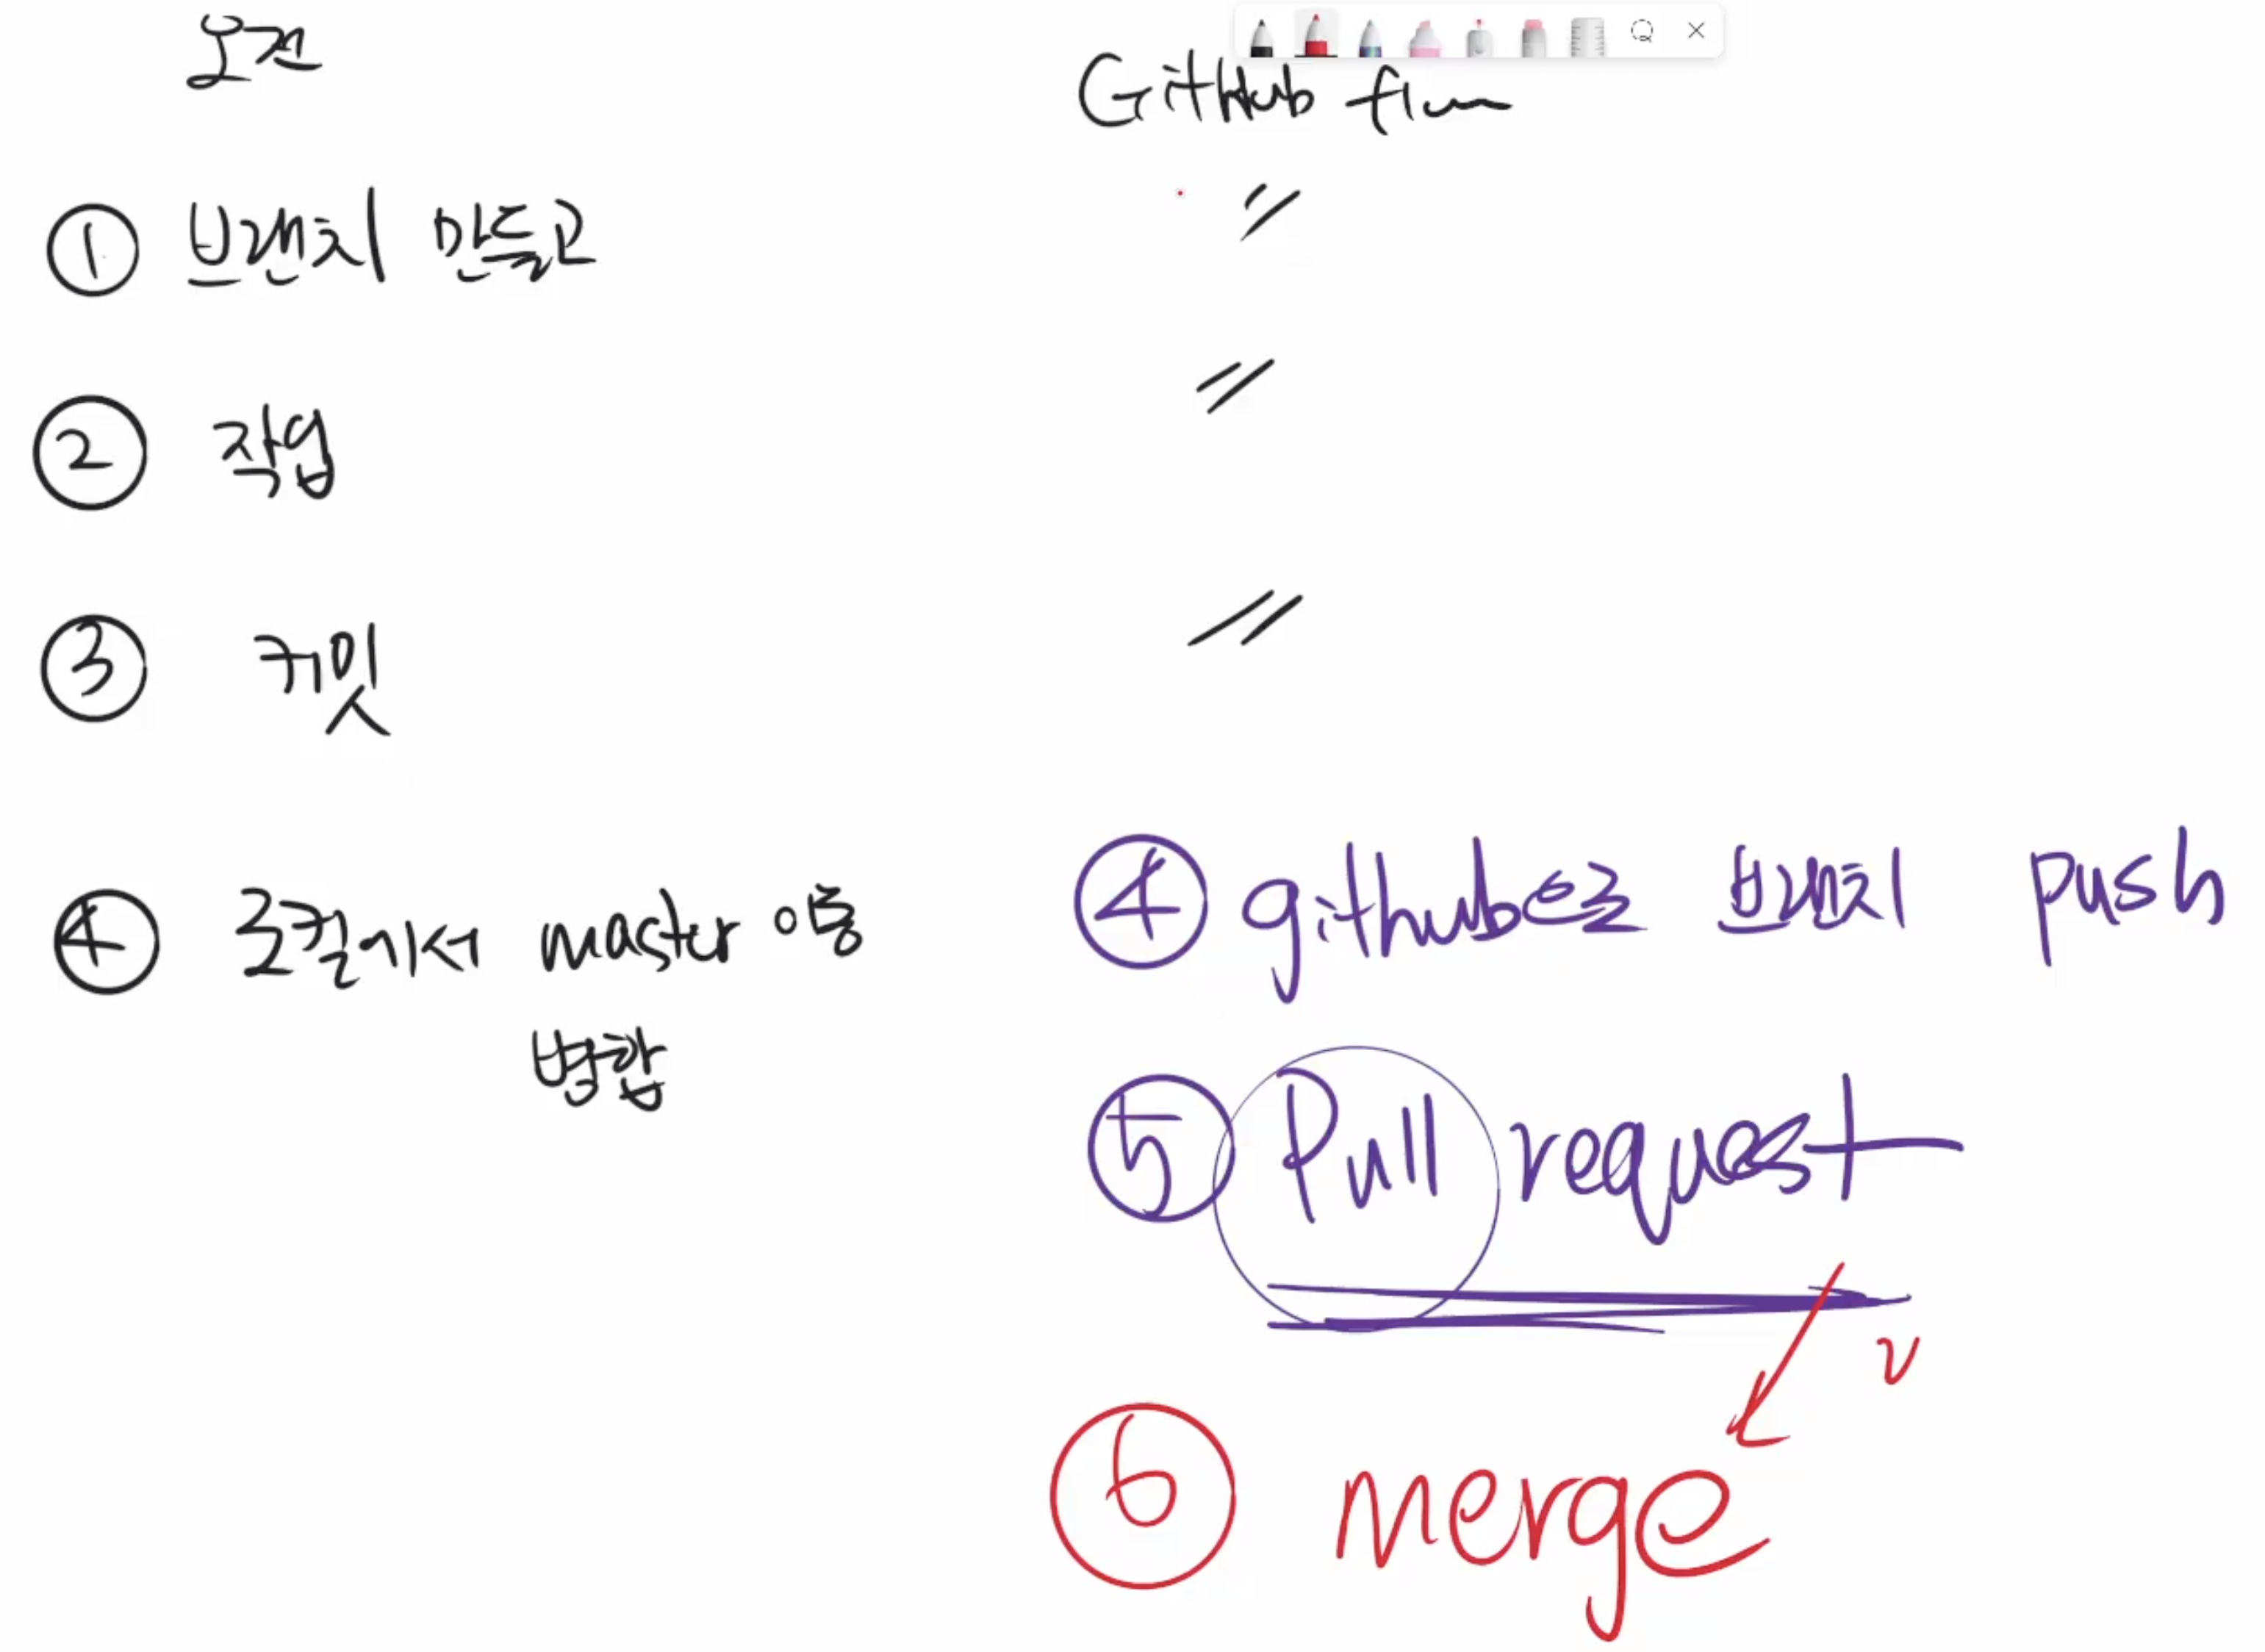 오전
GitHub flow
① 브랜치 만들고
〃
② 작업
〃
③ 커밋
〃
④ 로컬에서 master 이동
병합
④ github으로 브랜치 push
⑤ Pull request
⑥ merge